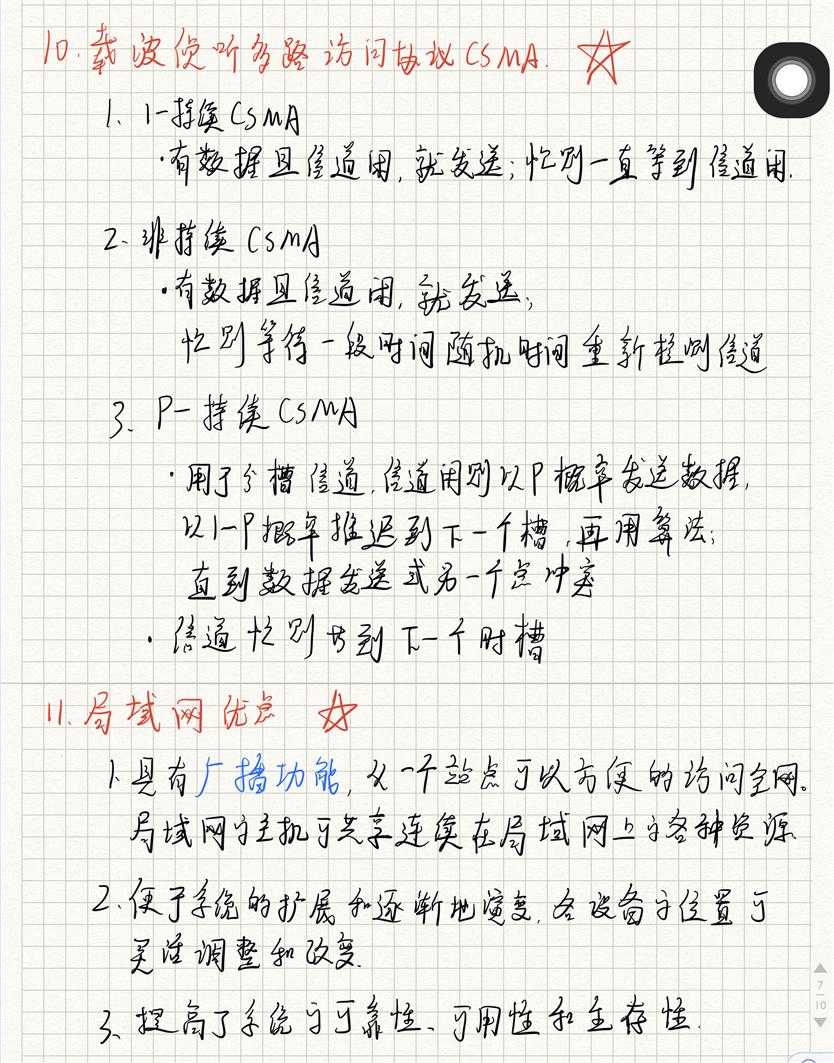 10. 载波侦听多路访问协议CSMA. ☆
1. 1-持续CSMA
·有数据且信道闲,就发送;忙则一直等到信道闲.
2. 非持续CSMA
·有数据且信道闲,就发送;
忙则等待一段时间随机时间重新检测信道
3. P-持续CSMA
·用于分槽信道,信道闲则以P概率发送数据,
以1-P概率推迟到下一个槽,再用算法;
直到数据发送或另一个点冲突
·信道忙则等到下一个时槽
11. 局域网优点 ☆
1. 具有广播功能,从一个站点可以方便的访问全网。
局域网的主机可共享连续在局域网上的各种资源.
2. 便于系统的扩展和逐渐地演变,各设备的位置可
灵活调整和改变.
3. 提高了系统的可靠性、可用性和生存性.
7
10